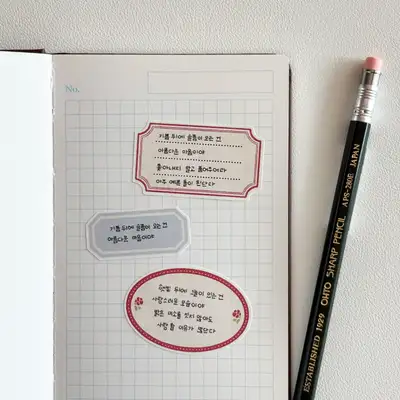 No.
기쁨 뒤에 슬픔이 오는 건
아름다운 마음이야
쫓아내지 말고 품어주어라
아주 예쁜 돌이 된단다
기쁨 뒤에 슬픔이 오는 건
아름다운 마음이야
햇빛 뒤에 그늘이 있는 건
사랑스러운 모습이야
밝은 미소를 짓지 않아도
사랑 할 이유가 많단다
ESTABLISHED 1929 OHTO SHARP PENCIL APS-280E JAPAN